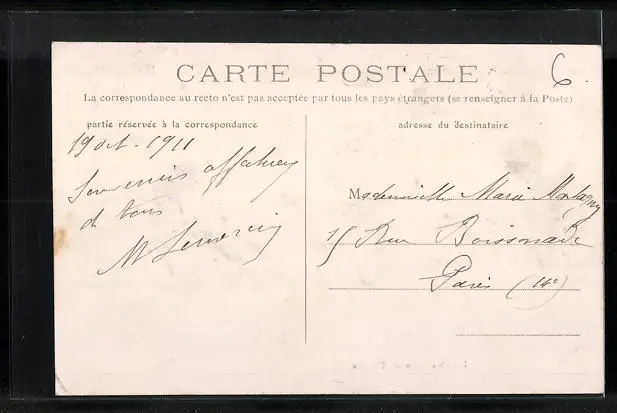 CARTE POSTALE
6
La correspondance au recto n'est pas acceptée par tous les pays étrangers (se renseigner à la Poste)
partie réservée à la correspondance
adresse du destinataire
19 Oct - 1911
Souvenirs affectueux
de tous
Mademoiselle Marie Montagny
15 Rue Boissonade
Paris (14e)